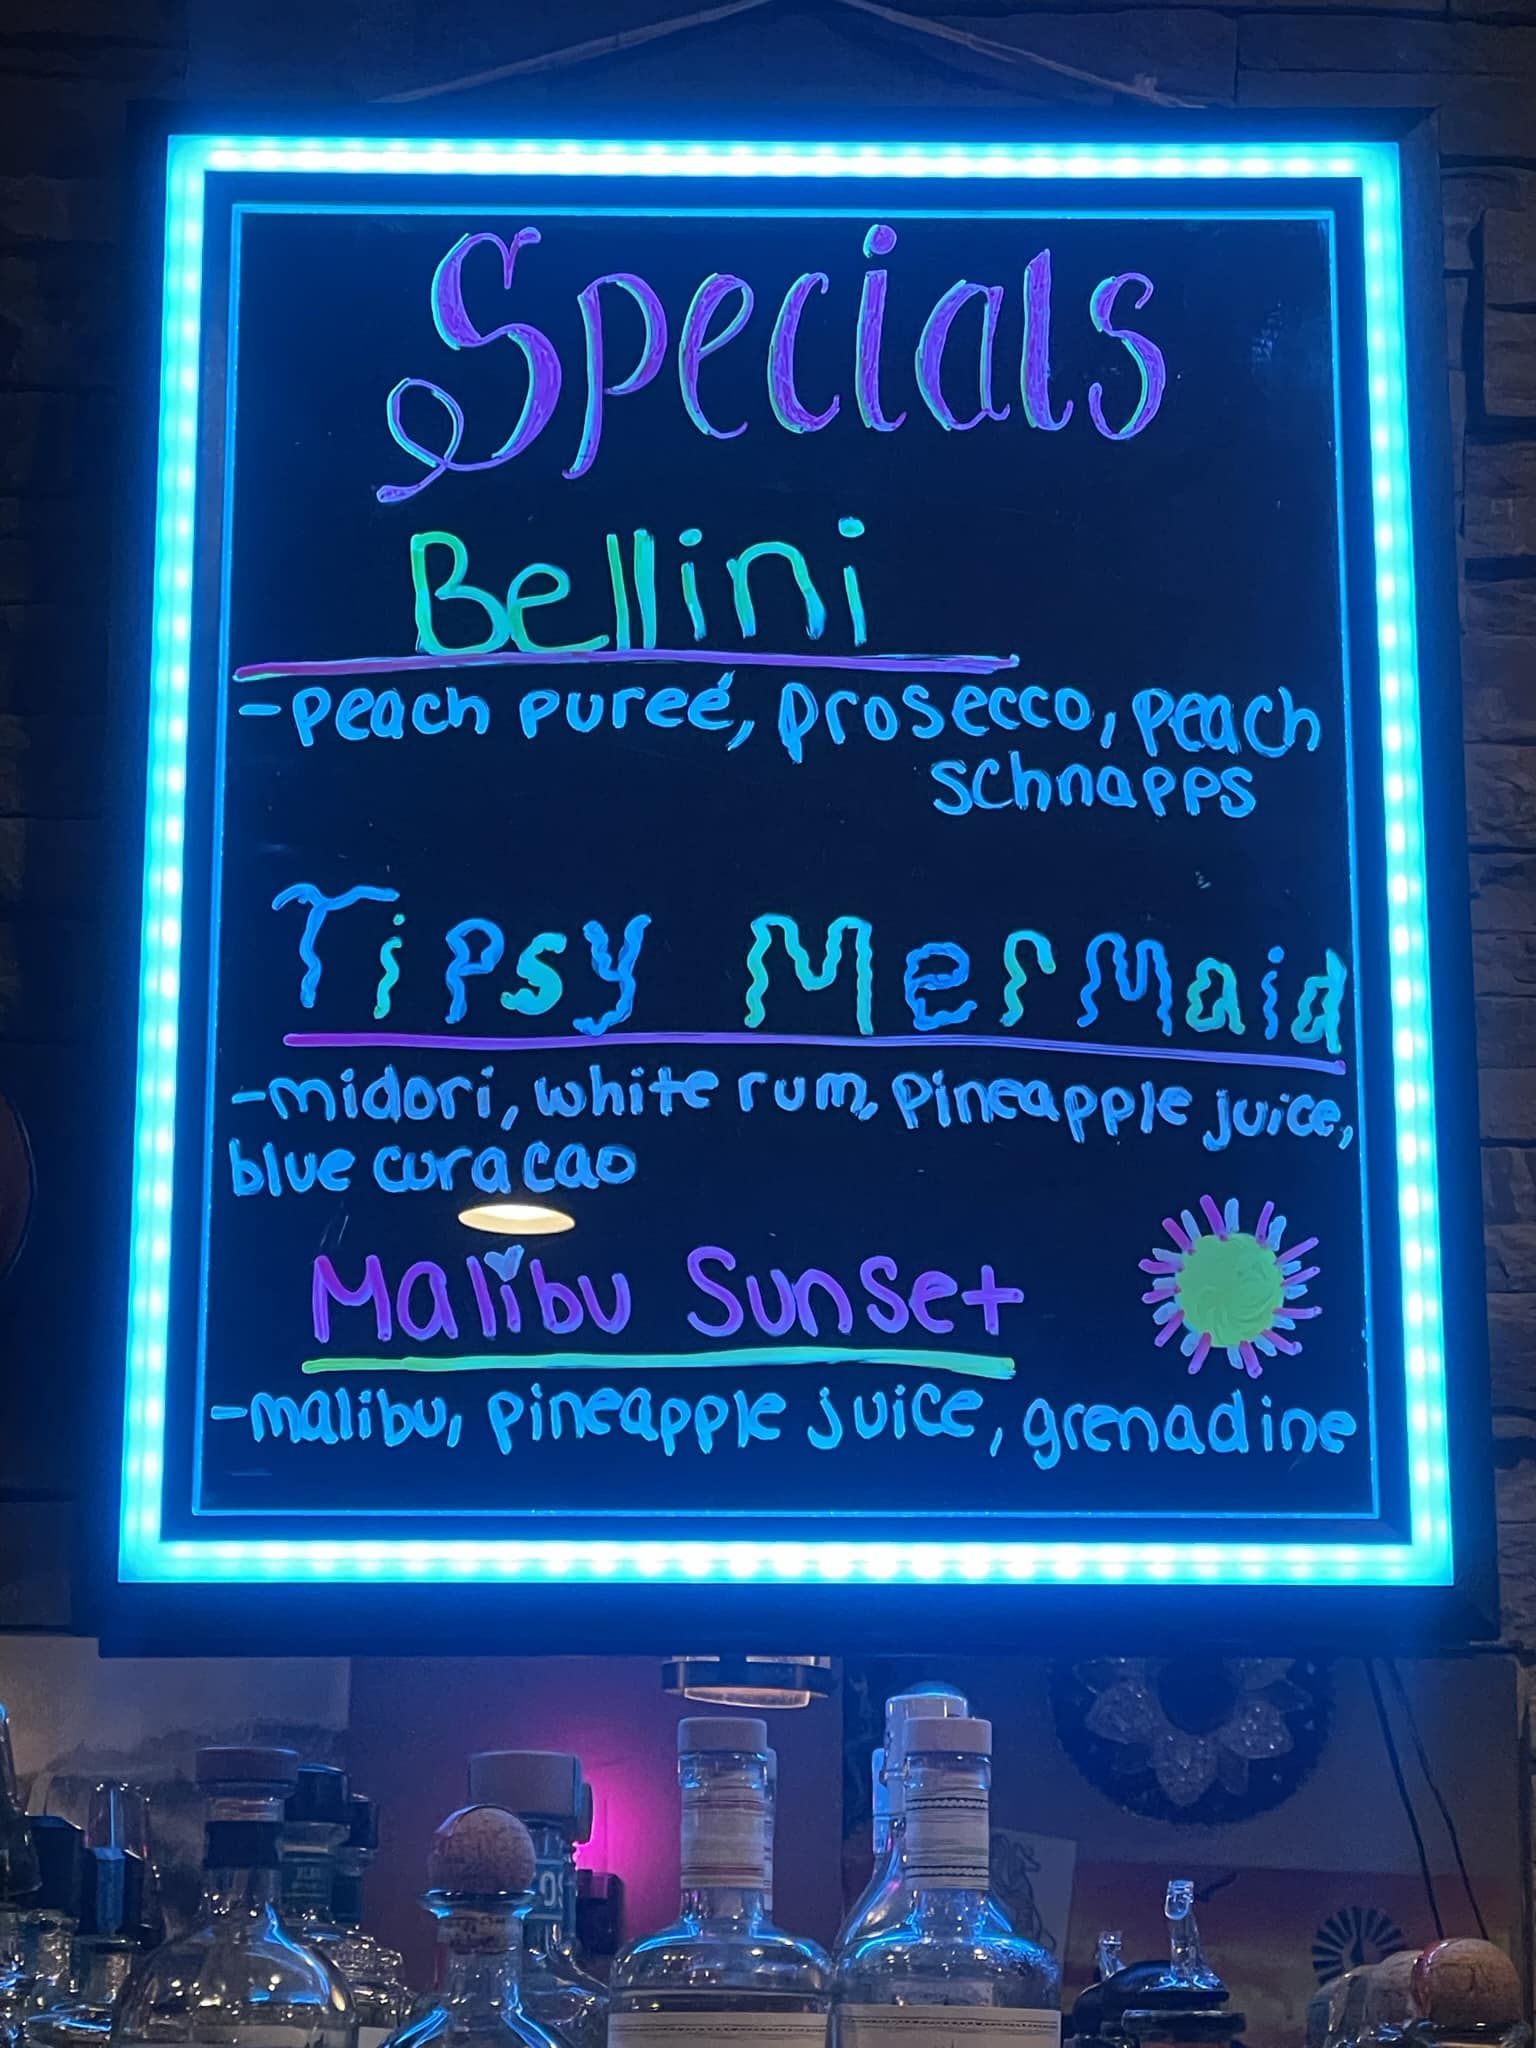 Specials
Bellini
-peach pureé, prosecco, peach
schnapps
Tipsy Mermaid
-midori, white rum, pineapple juice,
blue curacao
Malibu Sunset
-malibu, pineapple juice, grenadine